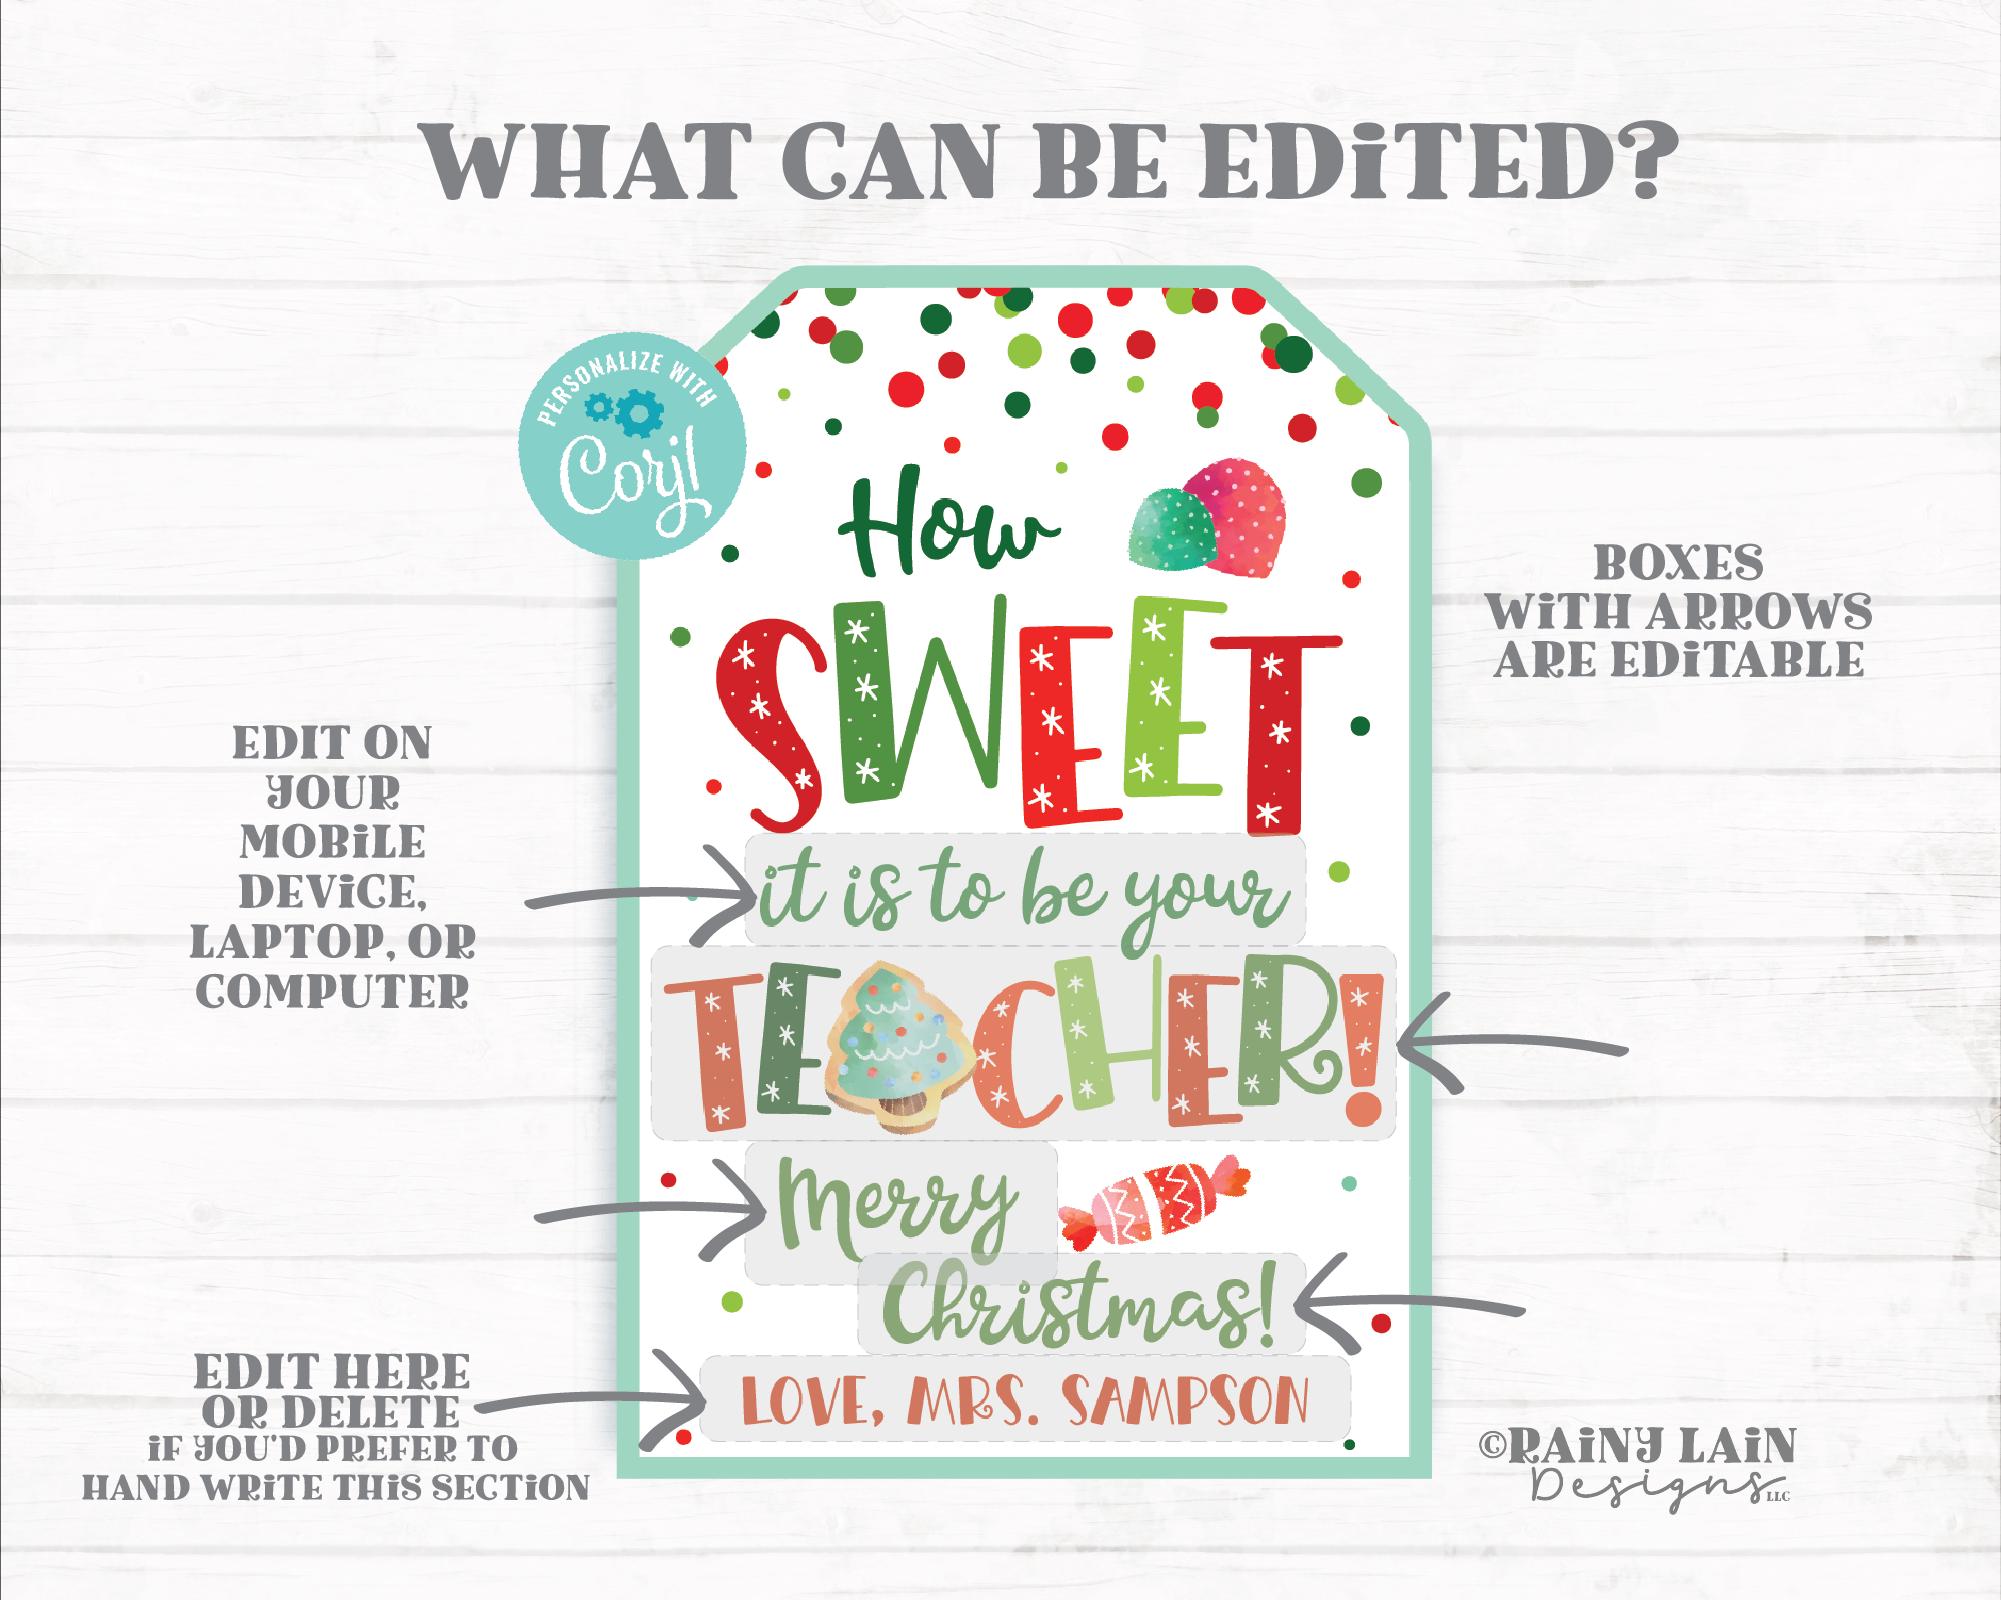 WHAT CAN BE EDiTED?
PERSONALIZE WITH
Corjl
How
SWEET
it is to be your
TE CHER!
Merry
Christmas!
LOVE, MRS. SAMPSON
EDIT ON
YOUR
MOBiLE
DEViCE,
LAPTOP, OR
COMPUTER
BOXES
WiTH ARROWS
ARE EDiTABLE
EDIT HERE
OR DELETE
iF YOU'D PREFER TO
HAND WRiTE THiS SECTiON
©RAiNY LAiN
Designs LLC